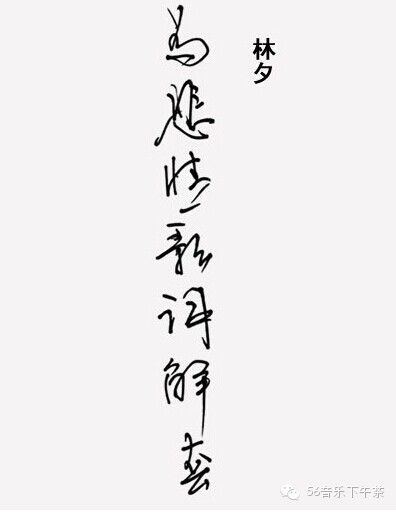 林夕
为悲情歌词解套
56音乐下午茶